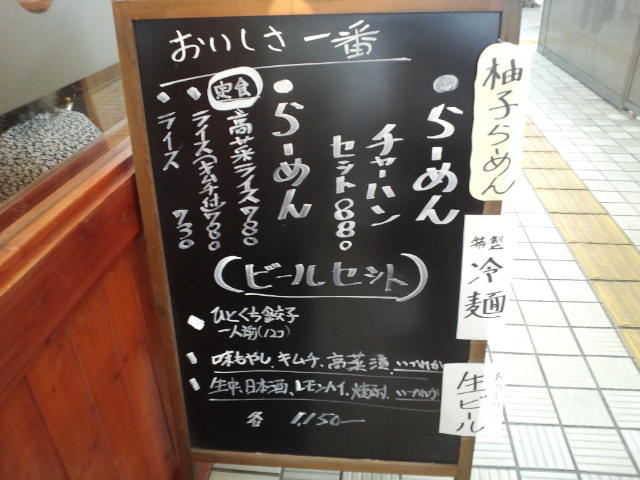 おいしさ一番
らーめん
チャーハン
セット880
らーめん
定食
高菜ライス780
ライス(キムチ付)780
ライス 730
(ビールセット)
ひとくち餃子
一人前(12コ)
味もやし、キムチ、高菜漬、いづれか
生中、日本酒、レモンハイ、焼酎、いづれか
各 1,150-
柚子らーめん
特製
冷麺
生ビール